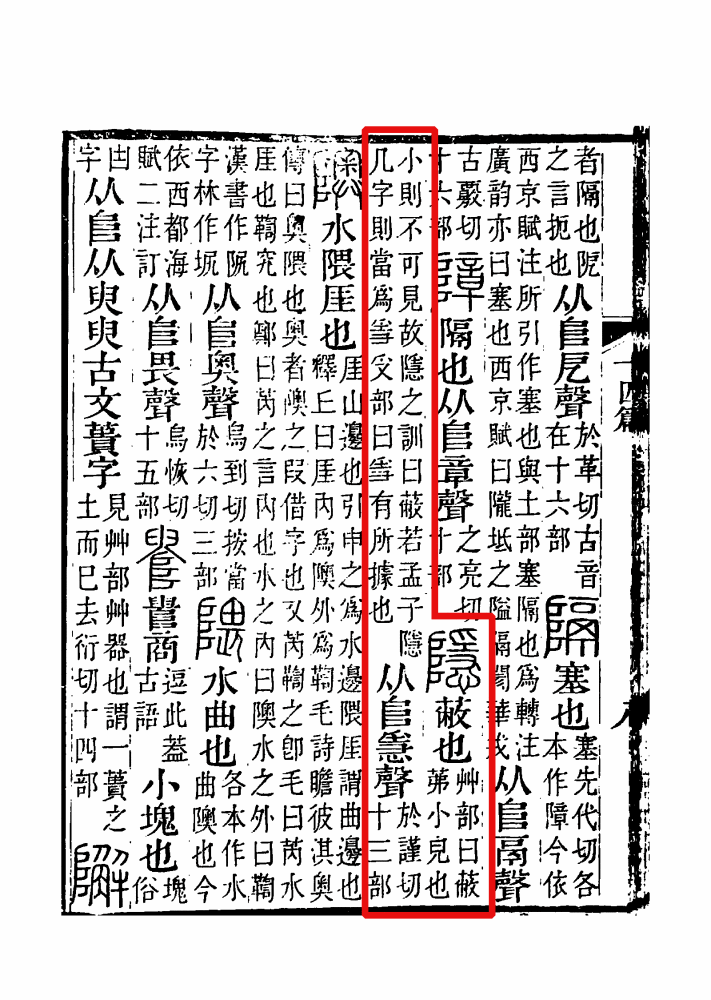 者隔也阸之言扼也从𨸏戹聲於革切古音在十六部隔塞也塞先代切各本作障今依
西京賦注所引作塞也與土部塞隔也爲轉注廣韵亦曰塞也西京賦曰隴坻之隘隔閡華戎从𨸏鬲聲
古覈切十六部障隔也从𨸏章聲之亮切十部隱蔽也艸部曰蔽茀小皃也
小則不可見故隱之訓曰蔽若孟子隱几字則當爲㥯𠬪部曰㥯有所據也从𨸏㥯聲於謹切十三部
隩水隈厓也厓山邊也引申之爲水邊隈厓謂曲邊也釋丘曰厓內爲隩外爲鞫毛詩瞻彼淇奧
傳曰奧隈也奧者隩之叚借字也又芮鞫之卽毛曰芮水厓也鞫究也鄭曰芮之言內也水之內曰隩水之外曰鞫
漢書作字林作从𨸏奧聲烏到切按當於六切三部隈水曲也各本作水曲隩也今
依西都海賦二注訂从𨸏畏聲烏恢切十五部𠳋商逗此葢古語小塊也塊俗
凷字从𨸏从臾臾古文蕢字見艸部艸器也謂一蕢之土而巳去衍切十四部
十四篇